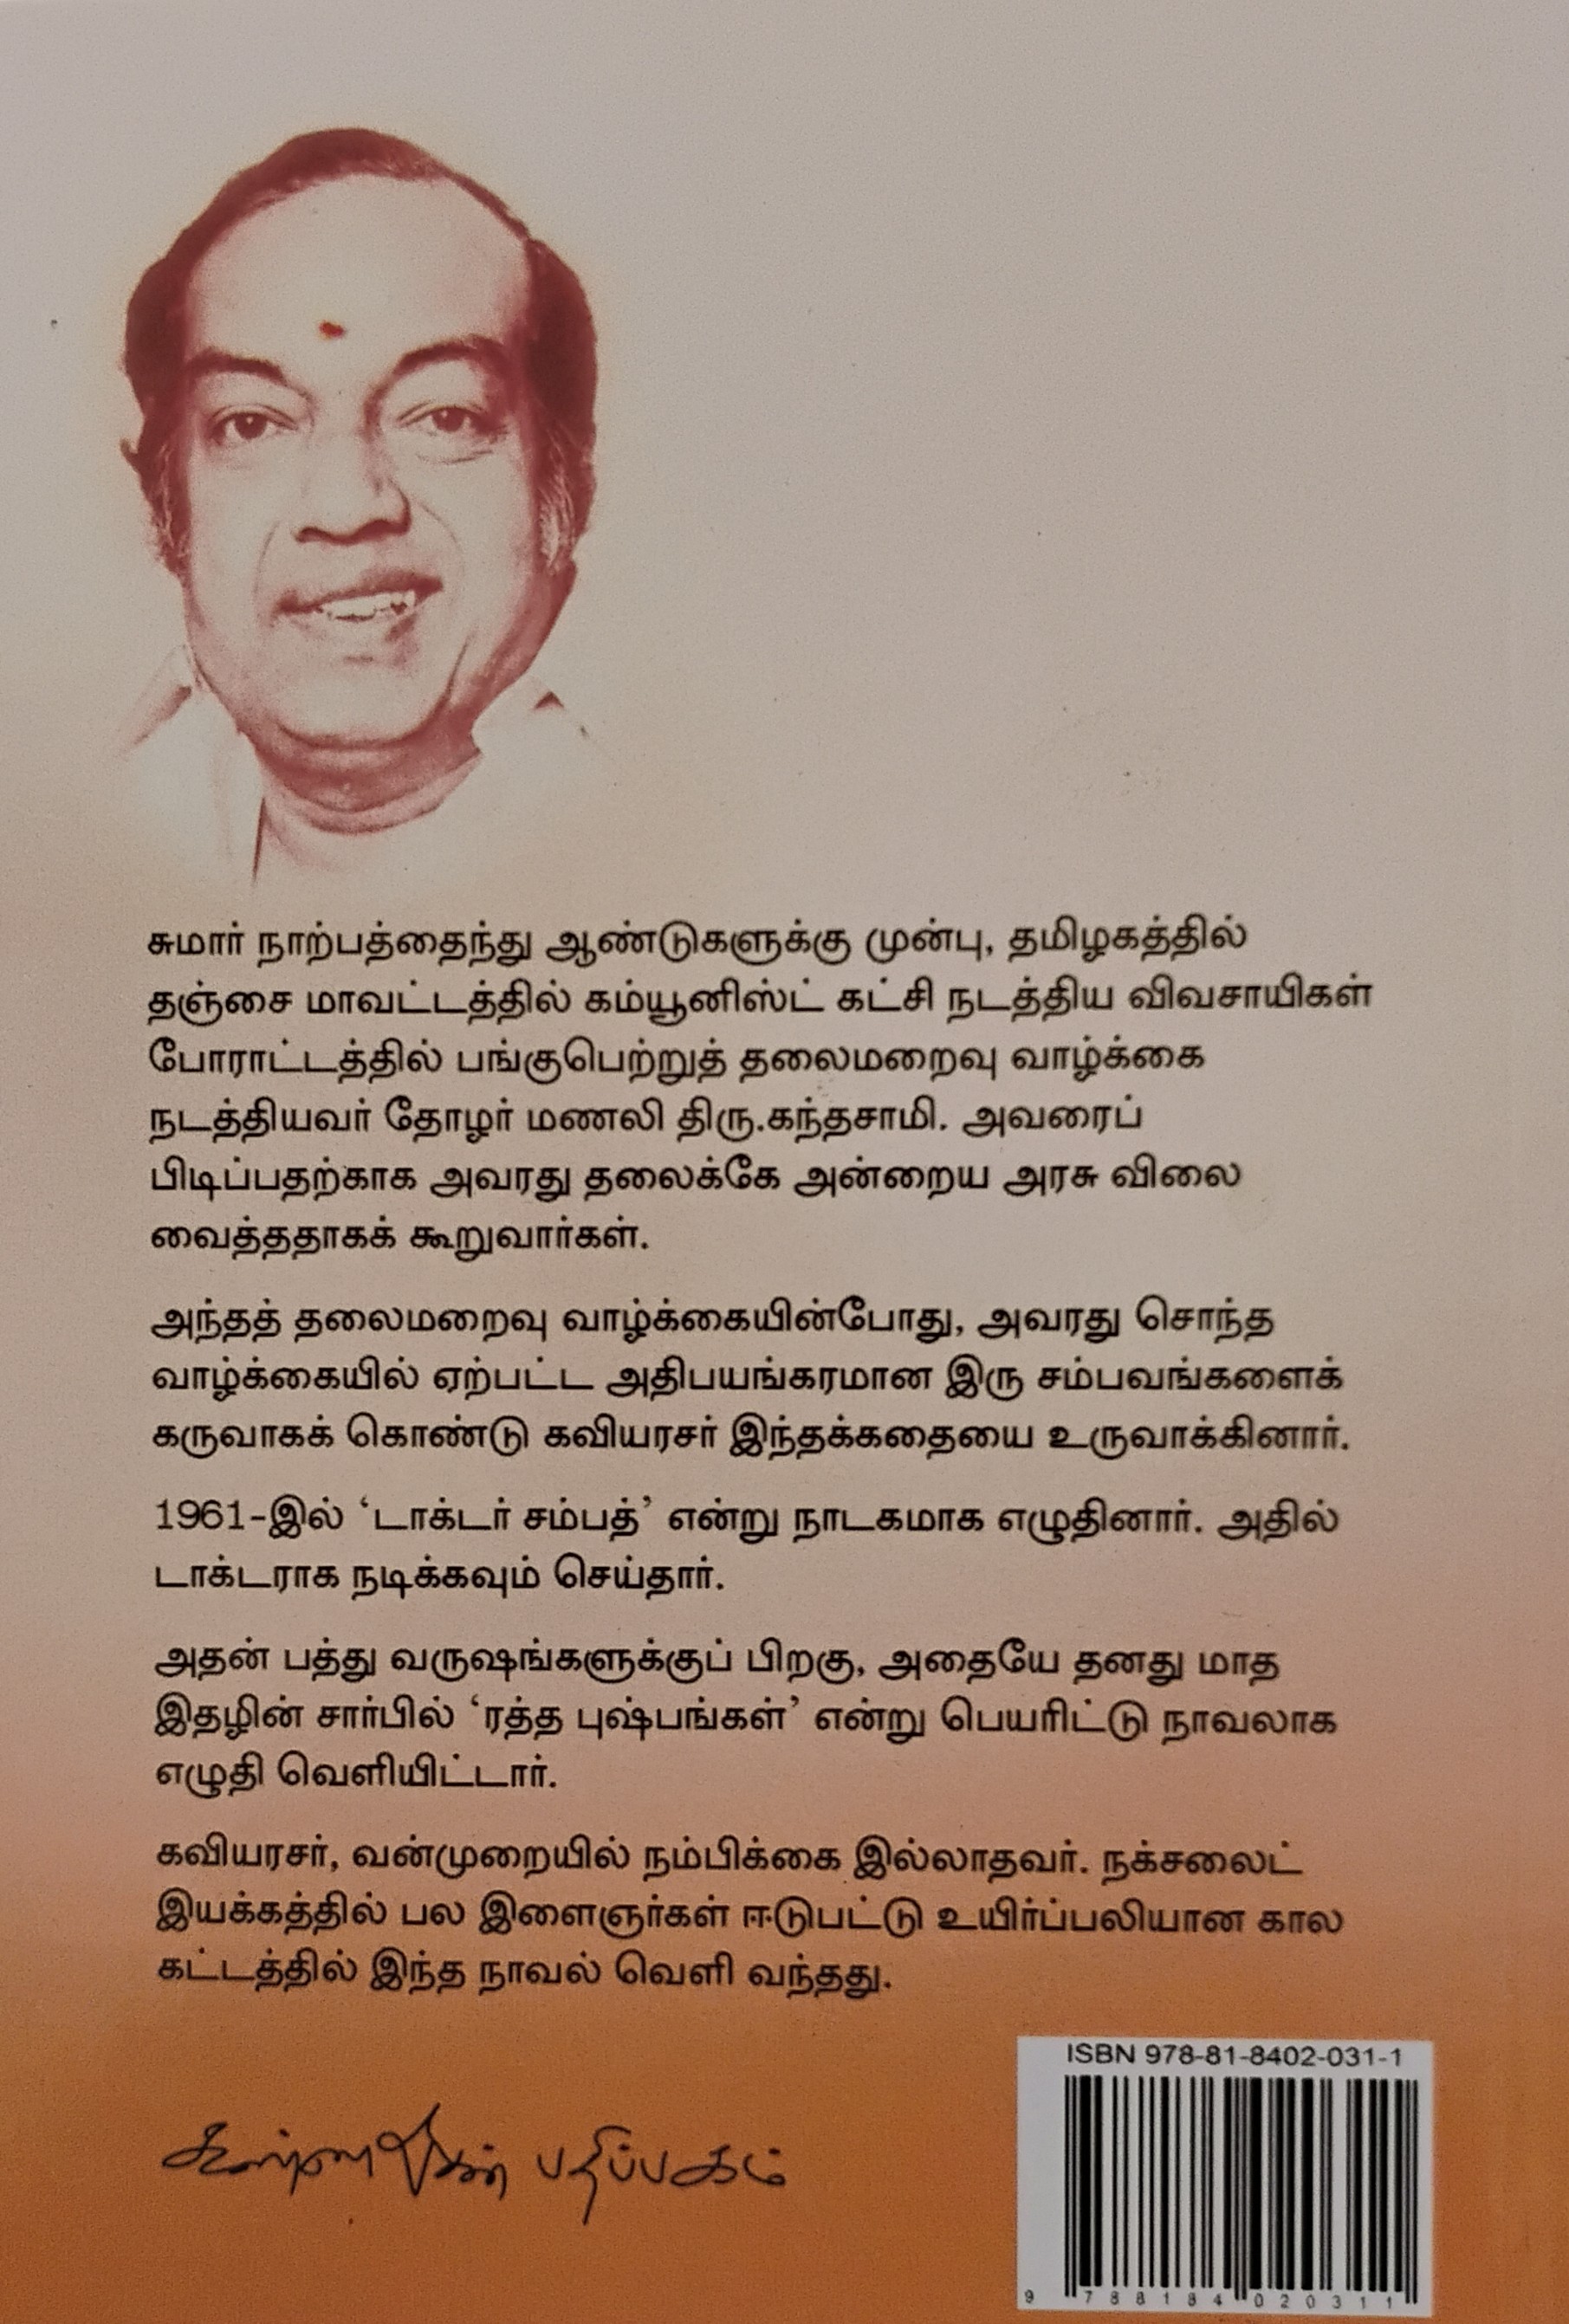 சுமார் நாற்பத்தைந்து ஆண்டுகளுக்கு முன்பு, தமிழகத்தில்
தஞ்சை மாவட்டத்தில் கம்யூனிஸ்ட் கட்சி நடத்திய விவசாயிகள்
போராட்டத்தில் பங்குபெற்றுத் தலைமறைவு வாழ்க்கை
நடத்தியவர் தோழர் மணலி திரு.கந்தசாமி. அவரைப்
பிடிப்பதற்காக அவரது தலைக்கே அன்றைய அரசு விலை
வைத்ததாகக் கூறுவார்கள்.
அந்தத் தலைமறைவு வாழ்க்கையின்போது, அவரது சொந்த
வாழ்க்கையில் ஏற்பட்ட அதிபயங்கரமான இரு சம்பவங்களைக்
கருவாகக் கொண்டு கவியரசர் இந்தக்கதையை உருவாக்கினார்.
1961-இல் ‘டாக்டர் சம்பத்’ என்று நாடகமாக எழுதினார். அதில்
டாக்டராக நடிக்கவும் செய்தார்.
அதன் பத்து வருஷங்களுக்குப் பிறகு, அதையே தனது மாத
இதழின் சார்பில் ‘ரத்த புஷ்பங்கள்’ என்று பெயரிட்டு நாவலாக
எழுதி வெளியிட்டார்.
கவியரசர், வன்முறையில் நம்பிக்கை இல்லாதவர். நக்சலைட்
இயக்கத்தில் பல இளைஞர்கள் ஈடுபட்டு உயிர்ப்பலியான கால
கட்டத்தில் இந்த நாவல் வெளி வந்தது.
கண்ணதாசன் பதிப்பகம்
ISBN 978-81-8402-031-1
9 788184 020311